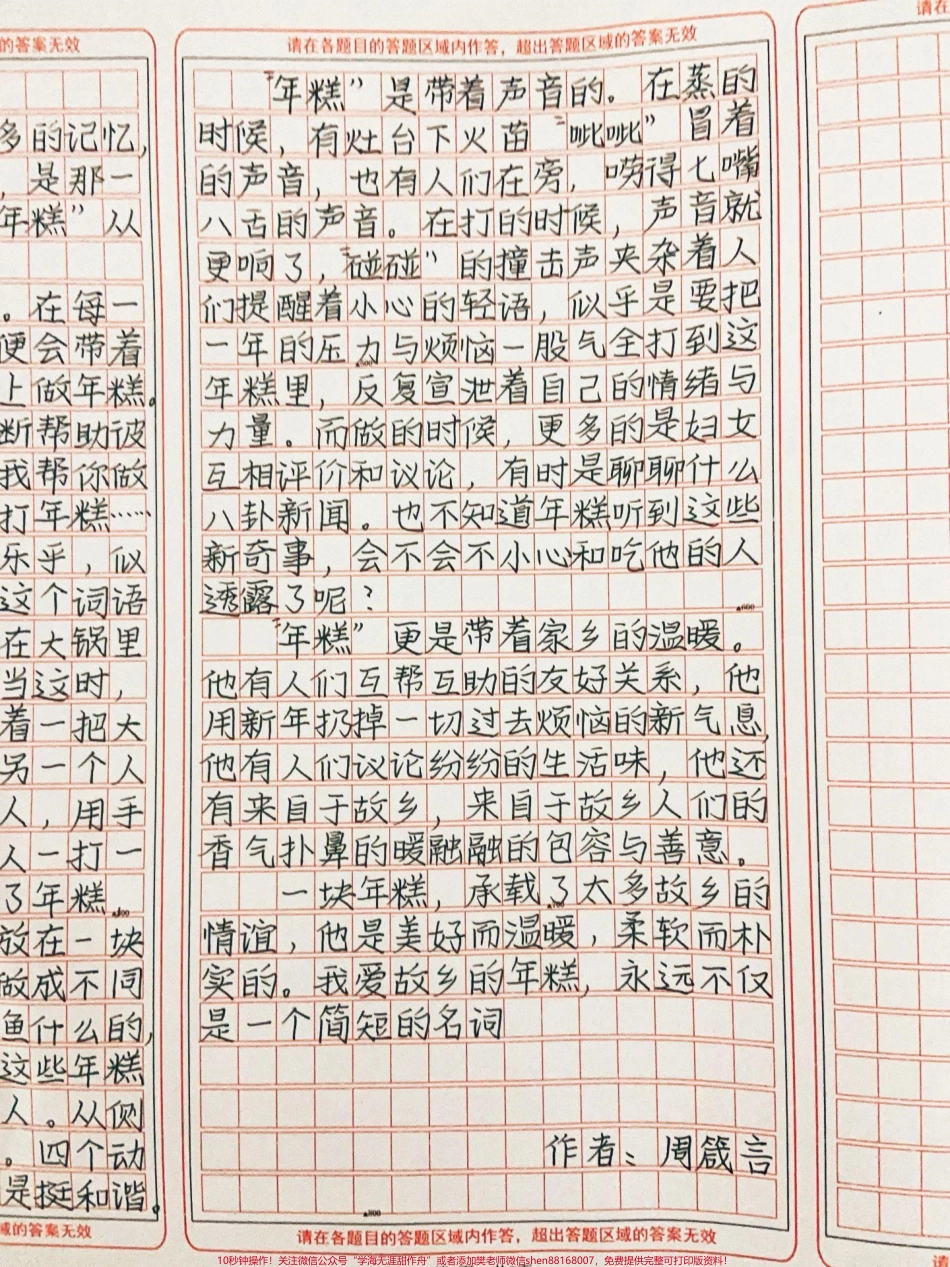 的答案无效
多的记忆,
，是那一
年糕”从
。在每一
便会带着
上做年糕。
断帮助彼
我帮你做
打年糕……
乐乎，似
这个词语
在大锅里
当这时，
着一把大
另一个人
人，用手
人一打一
了年糕
放在一块
做成不同
鱼什么的,
这些年糕
人。从侧
。四个动
是挺和谐。
域的答案无效
请在各题目的答题区域内作答，超出答题区域的答案无效
“年糕”是带着声音的。在蒸的
时候，有灶台下火苗“呲呲”冒着
的声音，也有人们在旁，唠得七嘴
八舌的声音。在打的时候，声音就
更响了，“碰碰”的撞击声夹杂着人
们提醒着小心的轻语，似乎是要把
一年的压力与烦恼一股气全打到这
年糕里，反复宣泄着自己的情绪与
力量。而做的时候，更多的是妇女
互相评价和议论，有时是聊聊什么
八卦新闻。也不知道年糕听到这些
新奇事，会不会不小心和吃他的人
透露了呢？
▲600
“年糕”更是带着家乡的温暖。
他有人们互帮互助的友好关系，他
用新年扔掉一切过去烦恼的新气息,
他有人们议论纷纷的生活味，他还
有来自于故乡，来自于故乡人们的
香气扑鼻的暖融融的包容与善意。
一块年糕，承载了太多故乡的
情谊，他是美好而温暖，柔软而朴
实的。我爱故乡的年糕，永远不仅
是一个简短的名词
作者：周箴言
▲800
请在各题目的答题区域内作答，超出答题区域的答案无效
请在
请
10秒钟操作！关注微信公众号“学海无涯甜作舟”或者添加樊老师微信shen88168007，免费提供完整可打印版资料！